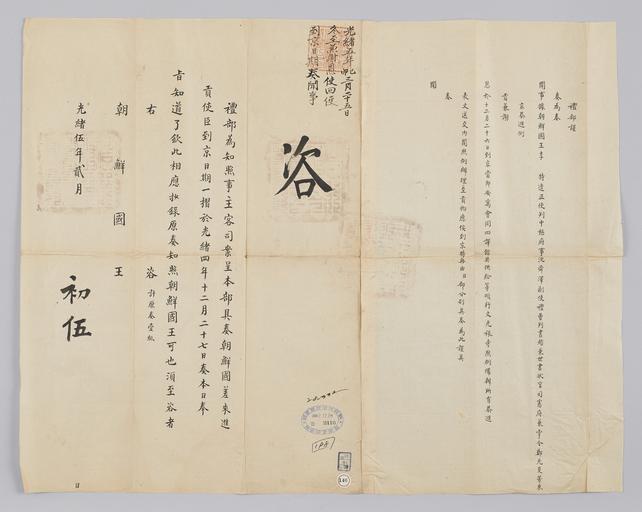 禮部謹
奏為奏
聞事據朝鮮國王李 特遣正使判中樞府事沈舜澤副使禮曹判書趙秉世書狀官司憲府兼掌令鄭元夏等來
京恭進例
貢兼謝
恩於十二月二十六日到京當即安寓會同四譯館其供給等項行文光祿寺照例備辦所有恭進
表文送交內閣照例辦理至貢物應俟到京時再由臣部分別具奏為此謹具
奏
聞
光緒五年己卯三月二十五日
冬至兼謝恩使回便
到京日期奏聞事
咨
禮部為知照事主客司案呈本部具奏朝鮮國差來進
貢使臣到京日期一摺於光緒四年十二月二十七日奏本日奉
旨知道了欽此相應抄錄原奏知照朝鮮國王可也須至咨者
右 咨 計原奏壹紙
朝鮮國王
光緒伍年貳月
初伍
日
140